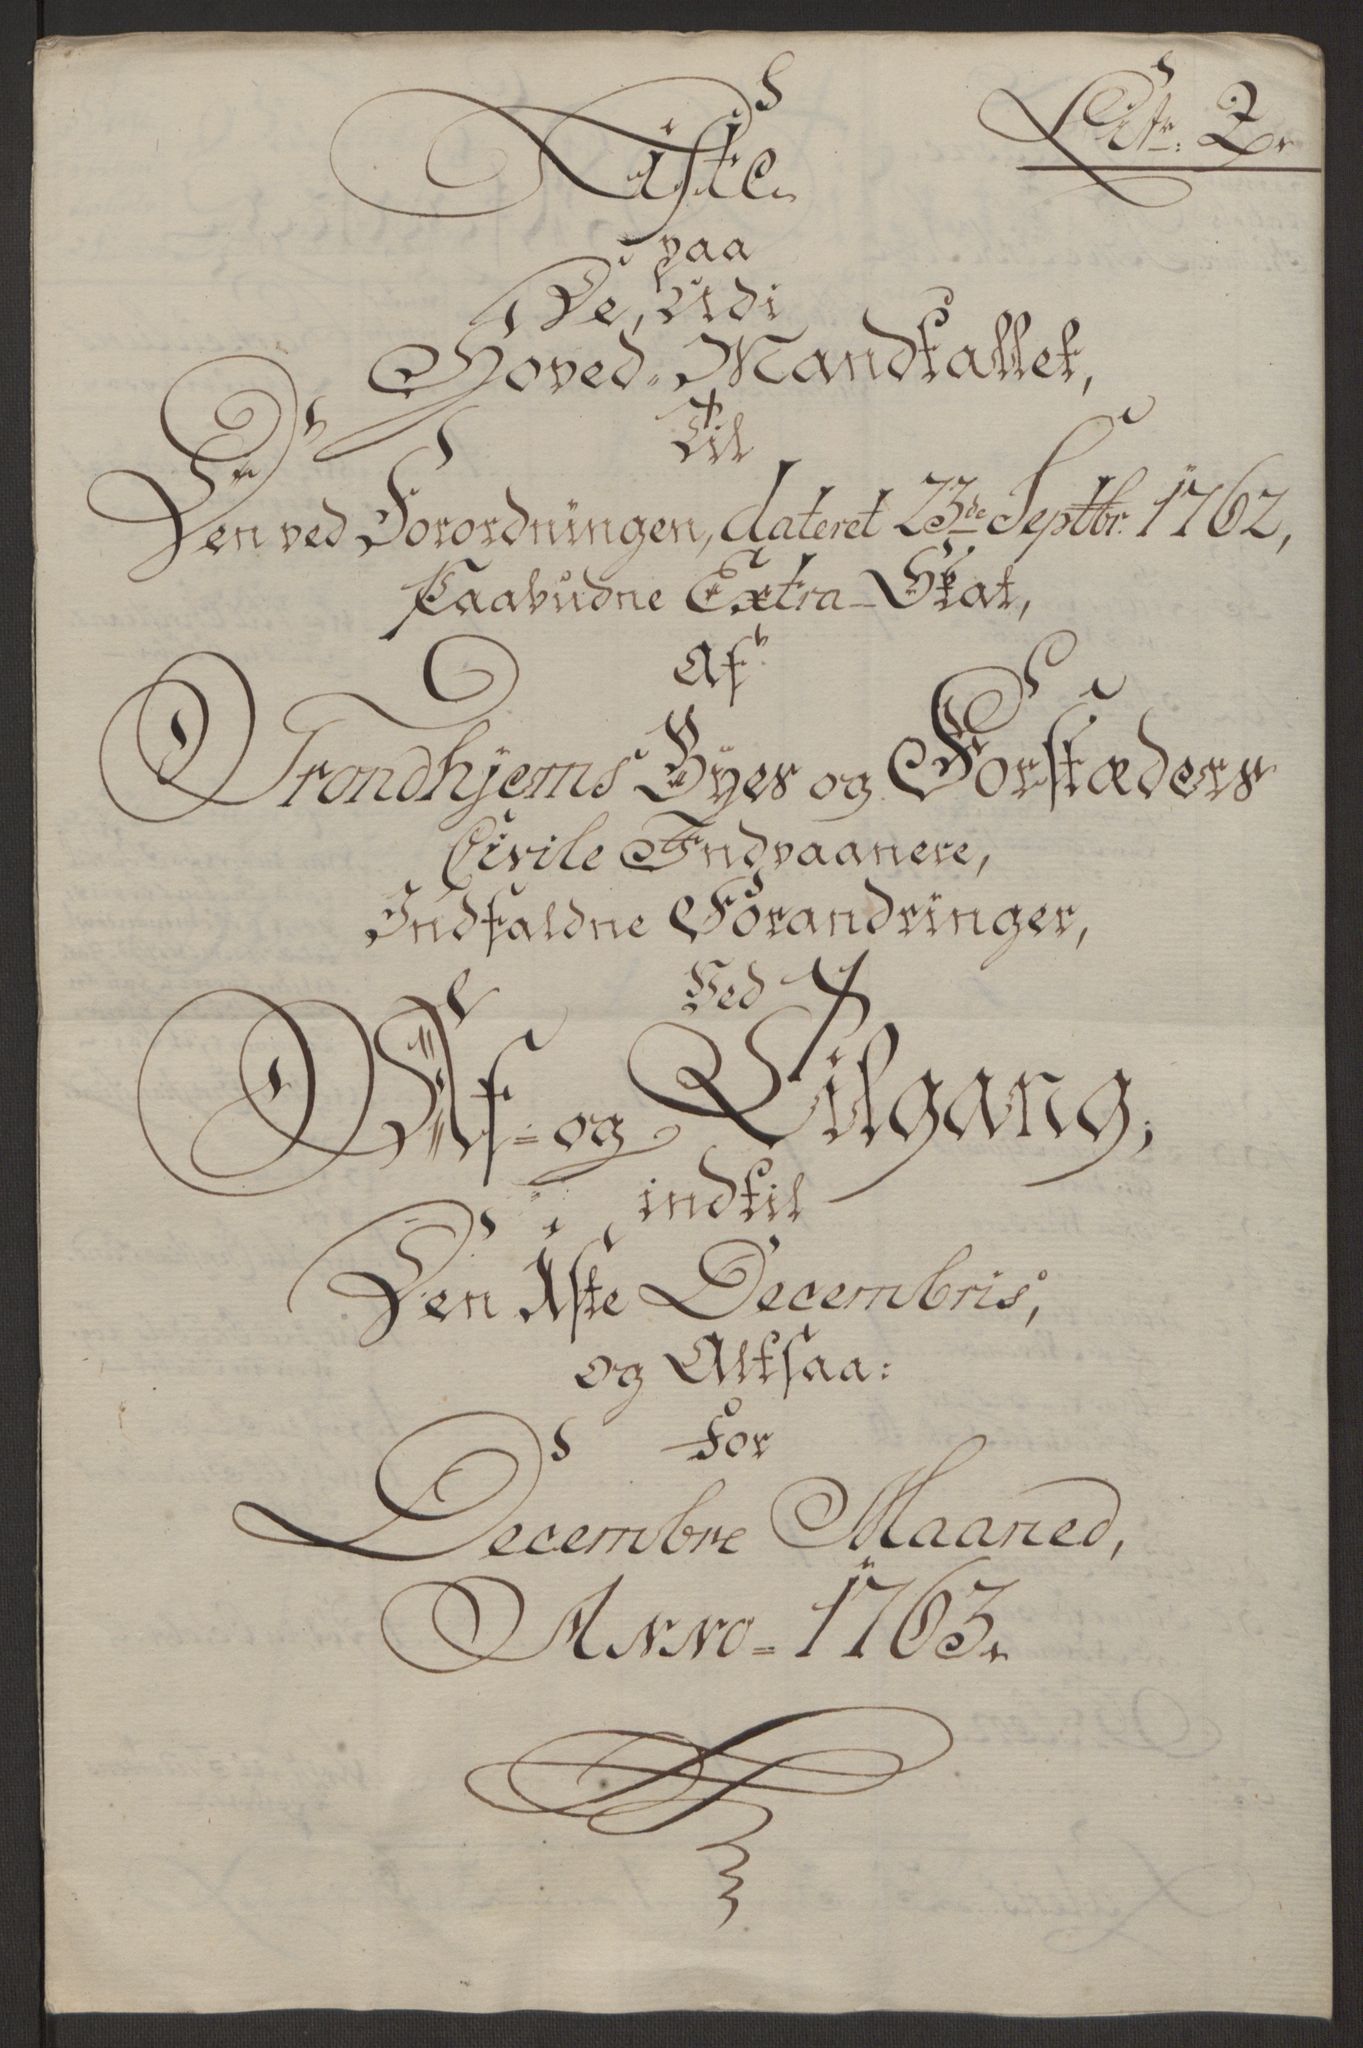 Litr: Z.
Liste
paa
De, udi
Hoved-Mandtallet,
Til
Den ved Forordningen, dateret 23de Septbr: 1762,
Paabudne Extra-Skat,
Af
Trondhjems Byes og Forstæders
Civile Indvaanere,
Indfaldne Forandringer,
Ved
Af- og Tilgang,
indtil
Den 1ste Decembris,
og Altsaa:
For
Decembre Maaned,
Anno- 1763.